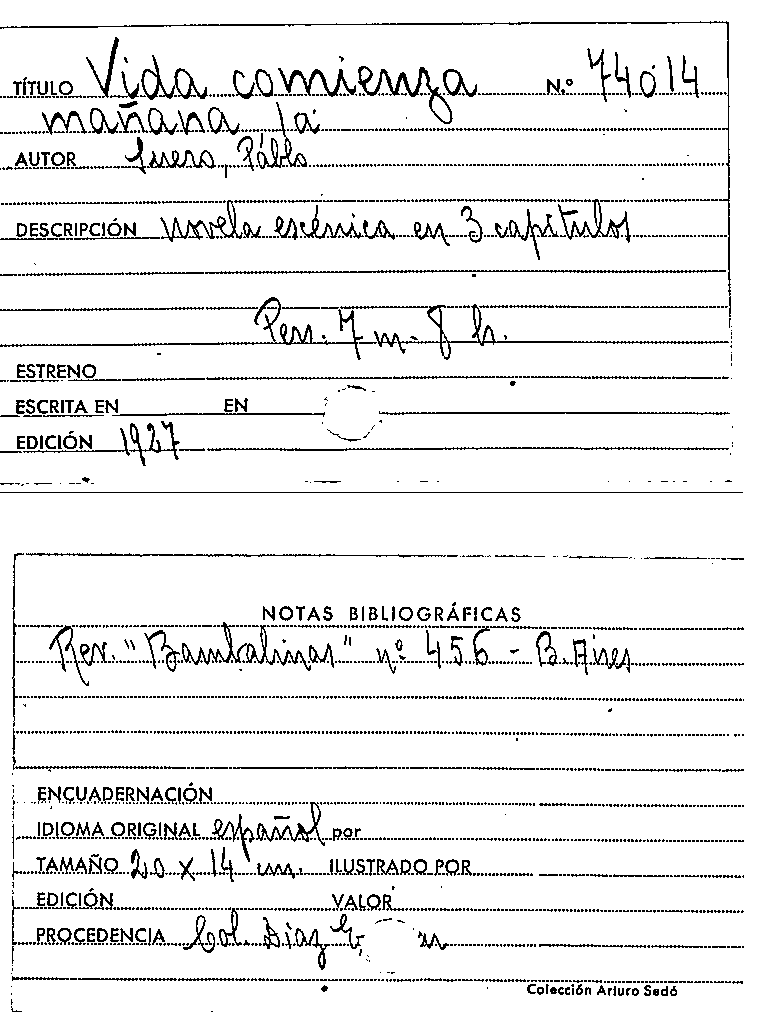 TÍTULO Vida comienza N.º 74014
mañana, la
AUTOR Suero, Pablo
DESCRIPCIÓN novela escénica en 3 capítulos
Pers. 7 m. 8 h.
ESTRENO
ESCRITA EN EN
EDICIÓN 1927
NOTAS BIBLIOGRÁFICAS
Rev. "Bambalinas" nº 456 - B. Aires
ENCUADERNACIÓN
IDIOMA ORIGINAL español por
TAMAÑO 20 x 14 cm. ILUSTRADO POR
EDICIÓN VALOR
PROCEDENCIA Col. Díaz
Colección Arturo Sedó